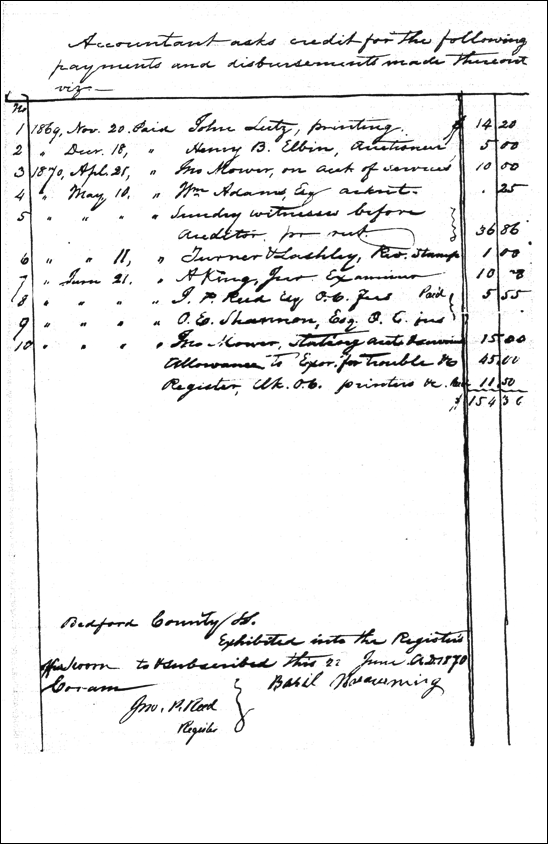 Accountant asks credit for the following
payments and disbursements made thereout
viz—
No
1 1869, Nov. 20. Paid John Lutz, printing. $ 14 20
2 " Decr. 18, " Henry B. Elbin, Auctioneer 5 00
3 1870, Apl. 25, " Jno Mower, on acct of services 10 00
4 " May 10, " Wm Adams, Esq . 25
5 " " " " Sundry witnesses before
Auditor, pr rect. 36 86
6 " " 11, " Turner & Lashley, Rev. Stamps 1 00
7 " June 21. " A King, Examiner 10
8 " " " " J. P. Reed Esq O.C. fees Paid 5 55
9 " " " " O. E. Shannon, Esq. O. C.
10 " " " " Jno Mower, stating acct & services 15 00
Allowance to Exor. for trouble &c 45.00
Register, Clk. O.C. printers &c. 11.50
$ 154 36
Bedford County SS.
Exhibited into the Register's
office sworn to & subscribed this 22 June A.D. 1870
Coram
Basil Browning
Jno. P. Reed
Register